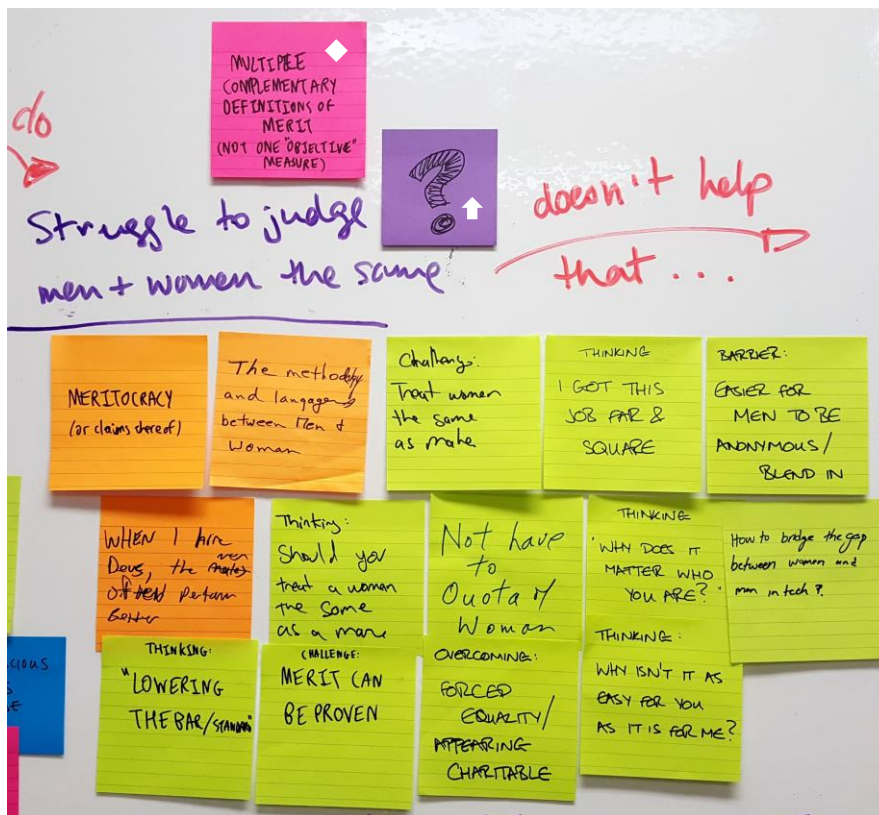 MULTIPLE
COMPLEMENTARY
DEFINITIONS OF
MERIT
(NOT ONE "OBJECTIVE"
MEASURE)
do
?
Struggle to judge
men + women the same
doesn't help
that ...
MERITOCRACY
(or claims thereof)
The methodology
and langages
between Men &
Woman
Challenge:
Treat women
the same
as male
THINKING
I GOT THIS
JOB FAR &
SQUARE
BARRIER:
EASIER FOR
MEN TO BE
ANONYMOUS/
BLEND IN
WHEN I hire
Devs, the men
often perform
better
Thinking:
Should you
treat a woman
the same
as a man
Not have
to
Quota
Woman
THINKING
'WHY DOES IT
MATTER WHO
YOU ARE?'
How to bridge the gap
between women and
men in tech?
cious
THINKING:
"LOWERING
THE BAR/STANDARD"
CHALLENGE:
MERIT CAN
BE PROVEN
OVERCOMING:
FORCED
EQUALITY/
APPEARING
CHARITABLE
THINKING:
WHY ISN'T IT AS
EASY FOR YOU
AS IT IS FOR ME?